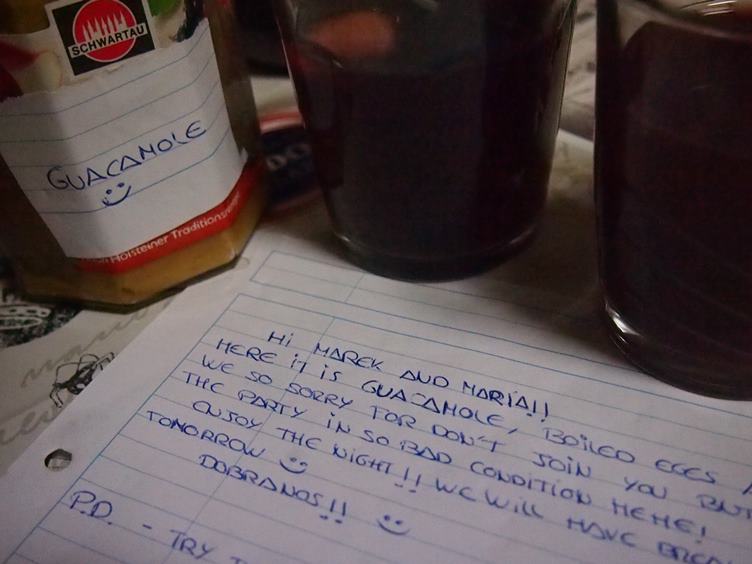 SCHWARTAU
GUACAMOLE
Holsteiner Traditions
Hi MAREK AND MARÍA!!
HERE it is GUACAMOLE, BOILED EGGS
WE SO SORRY FOR DON'T JOIN YOU BUT
THE PARTY IN SO BAD CONDITION HEHE!
ENJOY THE NIGHT!! WE Will HAVE BREA
TOMORROW
DOBRANOS!!
P.D. - TRY